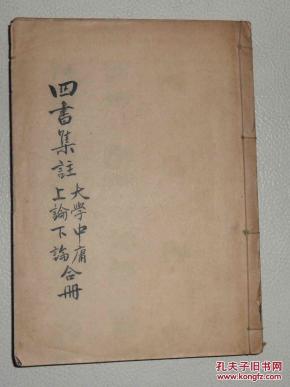 四書集註
大學中庸
上論下論
合冊
孔夫子旧书网